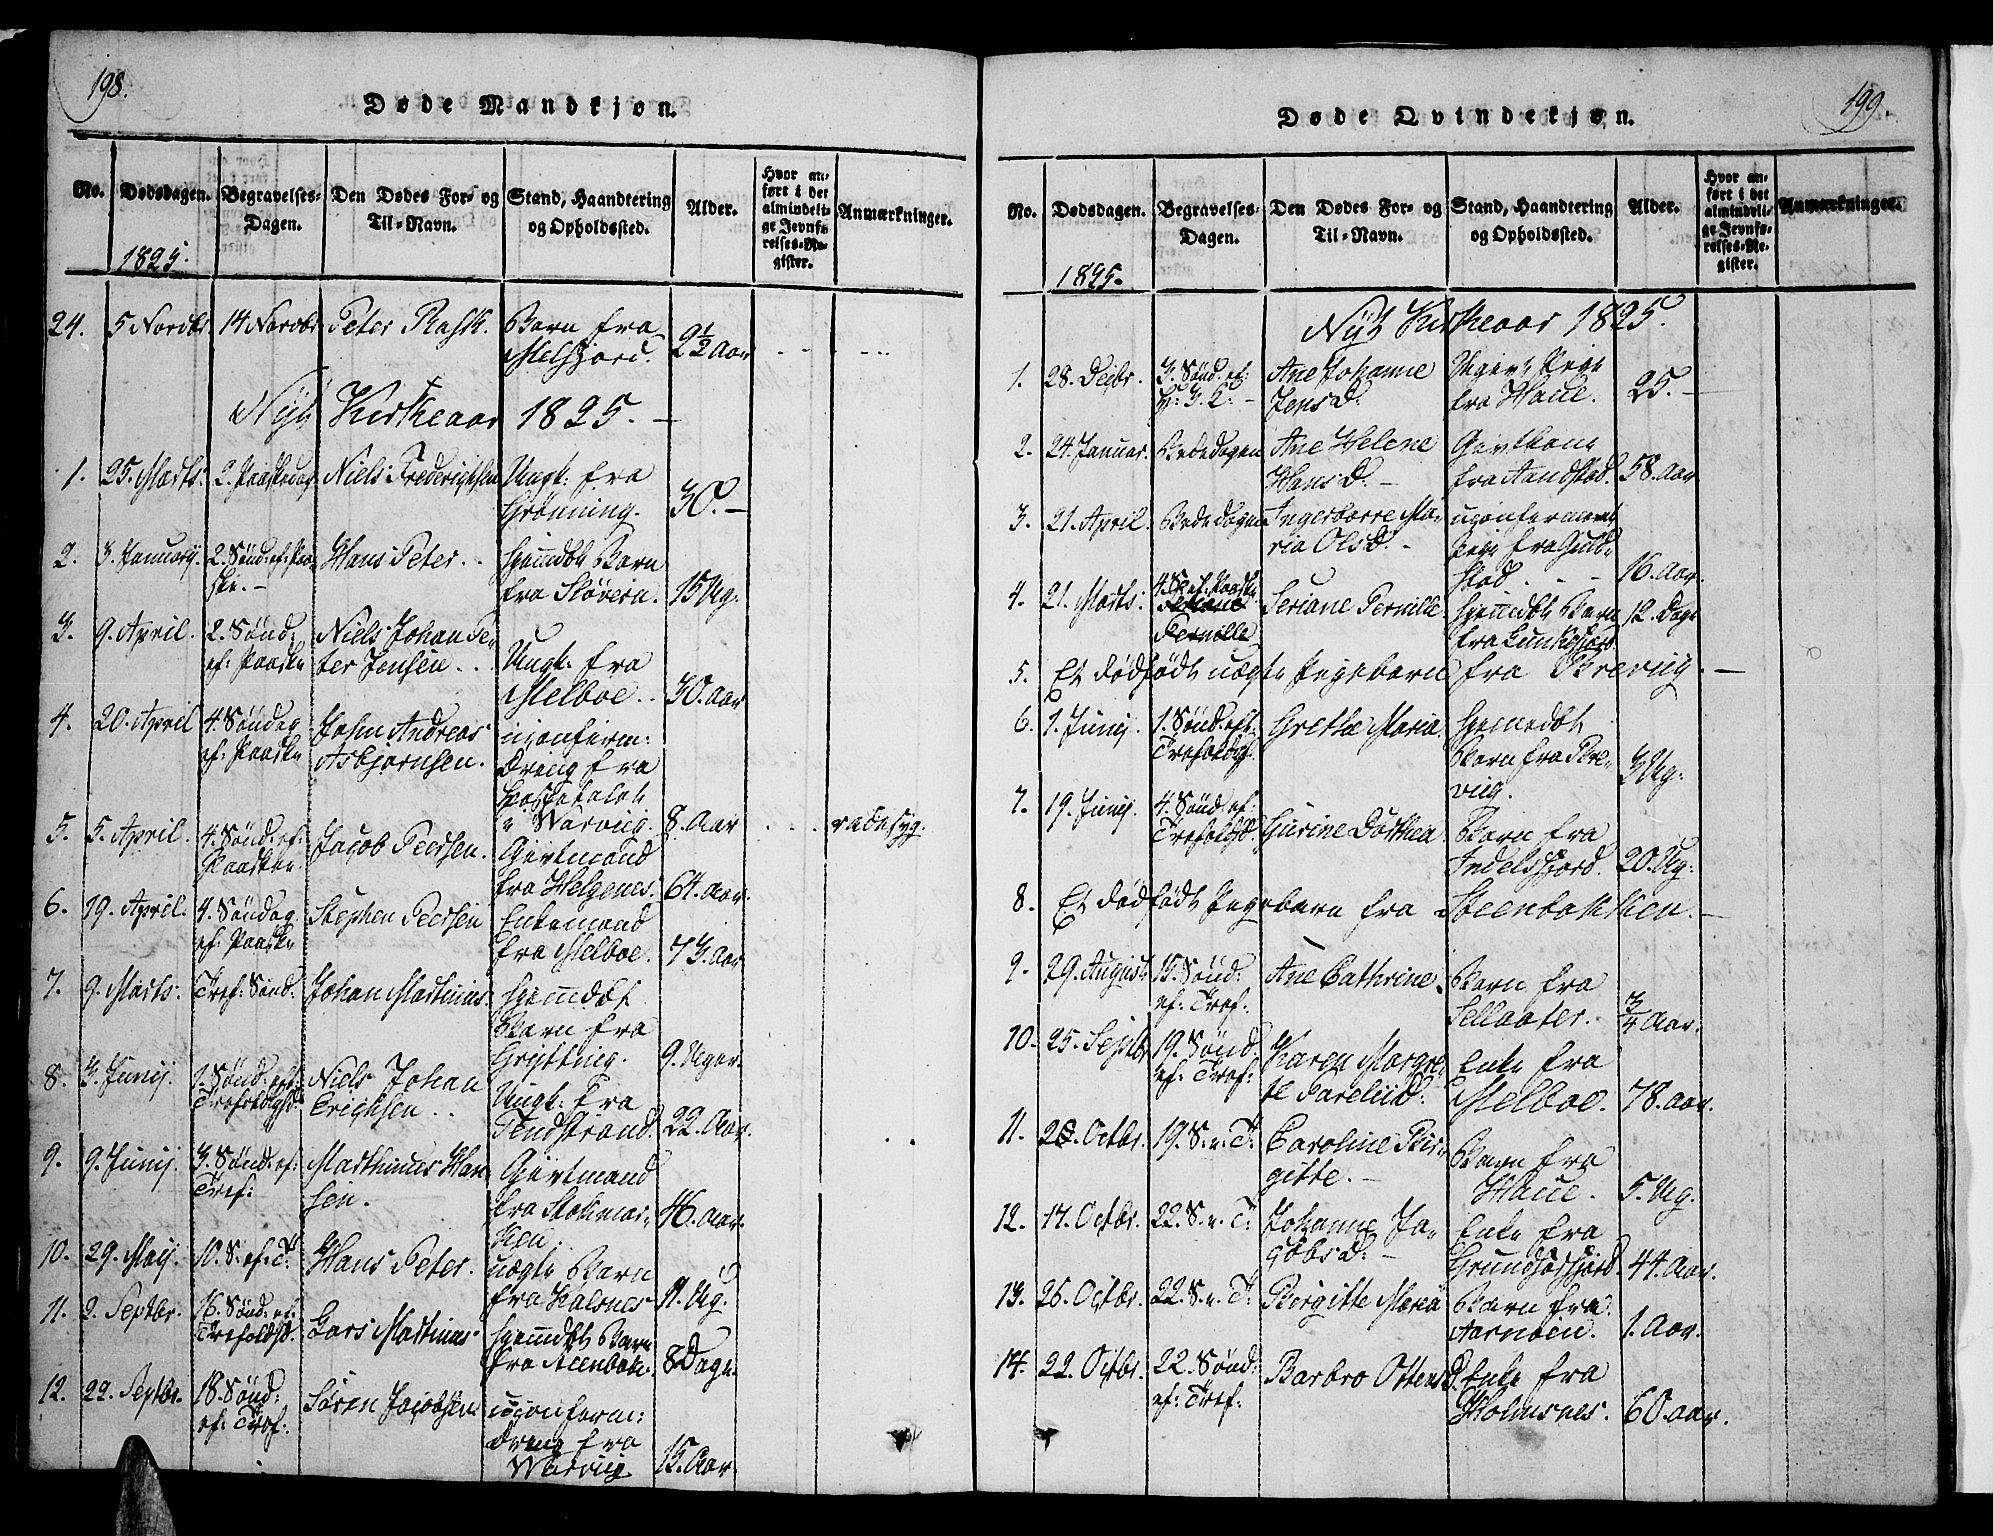 198.
Døde Mandkjøn.
No. Dødsdagen. Begravelses-Dagen. Den Dødes For- og Til-Navn. Stand, Haandtering og Opholdssted. Alder. Hvor anført i det almindelige Jevnførelses-Register. Anmærkninger.
1825.
24. 5 Novbr 14 Novbr Peter Rask. Barn fra Melfjord. 2½ Aar
Nyt Kirkeaar 1825.
1. 25. Marts. 2. Paaskedag Niels Frederichsen Ungk: fra Grønning. 30.
2. 3. Januarij. 2. Sønd: ef: Paaske. Hans Peter. hjemdøbt Barn fra Skøvern. 15 Ug:
3. 9. April. 2. Sønd: ef: Paaske Niels Johan Peter Jensen. Ungk: fra Melboe. 30. Aar
4. 20. April 4. Søndag ef: Paaske John Andreas Asbjørnsen. uconferm: Dreng fra Hospitalet i Warvig. 8. Aar radesyg.
5. 5. April. 4. Sønd: ef: Paaske. Jacob Peersen. Giftmand fra Helgenes. 64. Aar.
6. 19. April. 4. Søndag ef: Paaske Stephen Peersen Enkemand fra Melboe. 73. Aar
7. 9. Marts. Tref: Sønd: Johan Martinus hjemdøbt Barn fra Gryttnig. 9. Uger.
8. 3. Junij. 1. Sønd: eft: Trefoldigd: Niels Johan Erichsen. Ungk: fra Tendstrand. 22. Aar.
9. 9. Junij. 3. Sønd: ef: Tref: Marthinus Hansen. Giftmand fra Stokmarken. 46. Aar.
10. 29. Maij. 10. S. ef: T: Hans Peter. uægte Barn fra Kalsnes 11. Ug.
11. 2. Septbr. 16. Sønd: ef: Trefoldhd. Lars Martinus hjemdøbt Barn fra Steenbak: 8 Dage.
12. 22. Septbr. 18. Sønd: ef: Tref: Søren Jacobsen uconferm: Dreng fra Warvig 15. Aar.
199.
Døde Qvindekjøn.
No. Dødsdagen. Begravelses-Dagen. Den Dødes For- og Til-Navn. Stand, Haandtering og Opholdssted. Alder. Hvor anført i det almindelige Jevnførelses-Register. Anmærkninger.
1825.
Nyt Kirkeaar 1825.
1. 28. Decbr. 3. Sønd: ef: H. 3. K. Ane Johanne Jens D. Pige fra Haue. 25.
2. 24. Januar. Bededagen Ane Helene Hans D. Gartkone fra Sandstad. 58. Aar
3. 21. April. Bededagen Ingerborre Maria Ols D. uconfermeret Pige fra Guldstad. 16. Aar.
4. 21. Marts. 4. S. ef: Paaske Seriane Pernille Seriane Pernille hjemdøbt Barn fra Lunkefjord. 12. Dage
5. Et dødfødt uægte Pigebarn fra Brevig.
6. 1. Junij. 1. Sønd: eft: Trefoldgf. Grethe Maria. hjemedøbt Barn fra Brevig. 3 Ug:
7. 19. Junij. 4. Sønd: ef: Trefoldhd. Gurine Dorthea Barn fra Indelsfjord. 20. Ug:
8. Et dødfødt Pigebarn fra Steenbakken.
9. 29. August 15. Sønd: ef: Tref: Ane Cathrine Barn fra Sellaater. ¾ Aar.
10. 25. Septbr 19. Sønd: ef: Tref: Karen Margrete Pareliid: Enke fra Melboe. 78. aar.
11. 28. Octbr. 19. S. e. T: Caroline Birgitte. Barn fra Haue. 5. Ug.
12. 17. Octbr. 22. S. e. T: Johanne Jacobs D. Enke fra Grundforfjord. 44. Aar.
13. 26. Octbr. 22. S. e. T: Birgitte Maria Barn fra Aarnøen. 1. Aar.
14. 22. Octbr. 22. Sønd: ef: Tref: Barbro Ottens D. Enke fra Holmsnes. 60. aar.